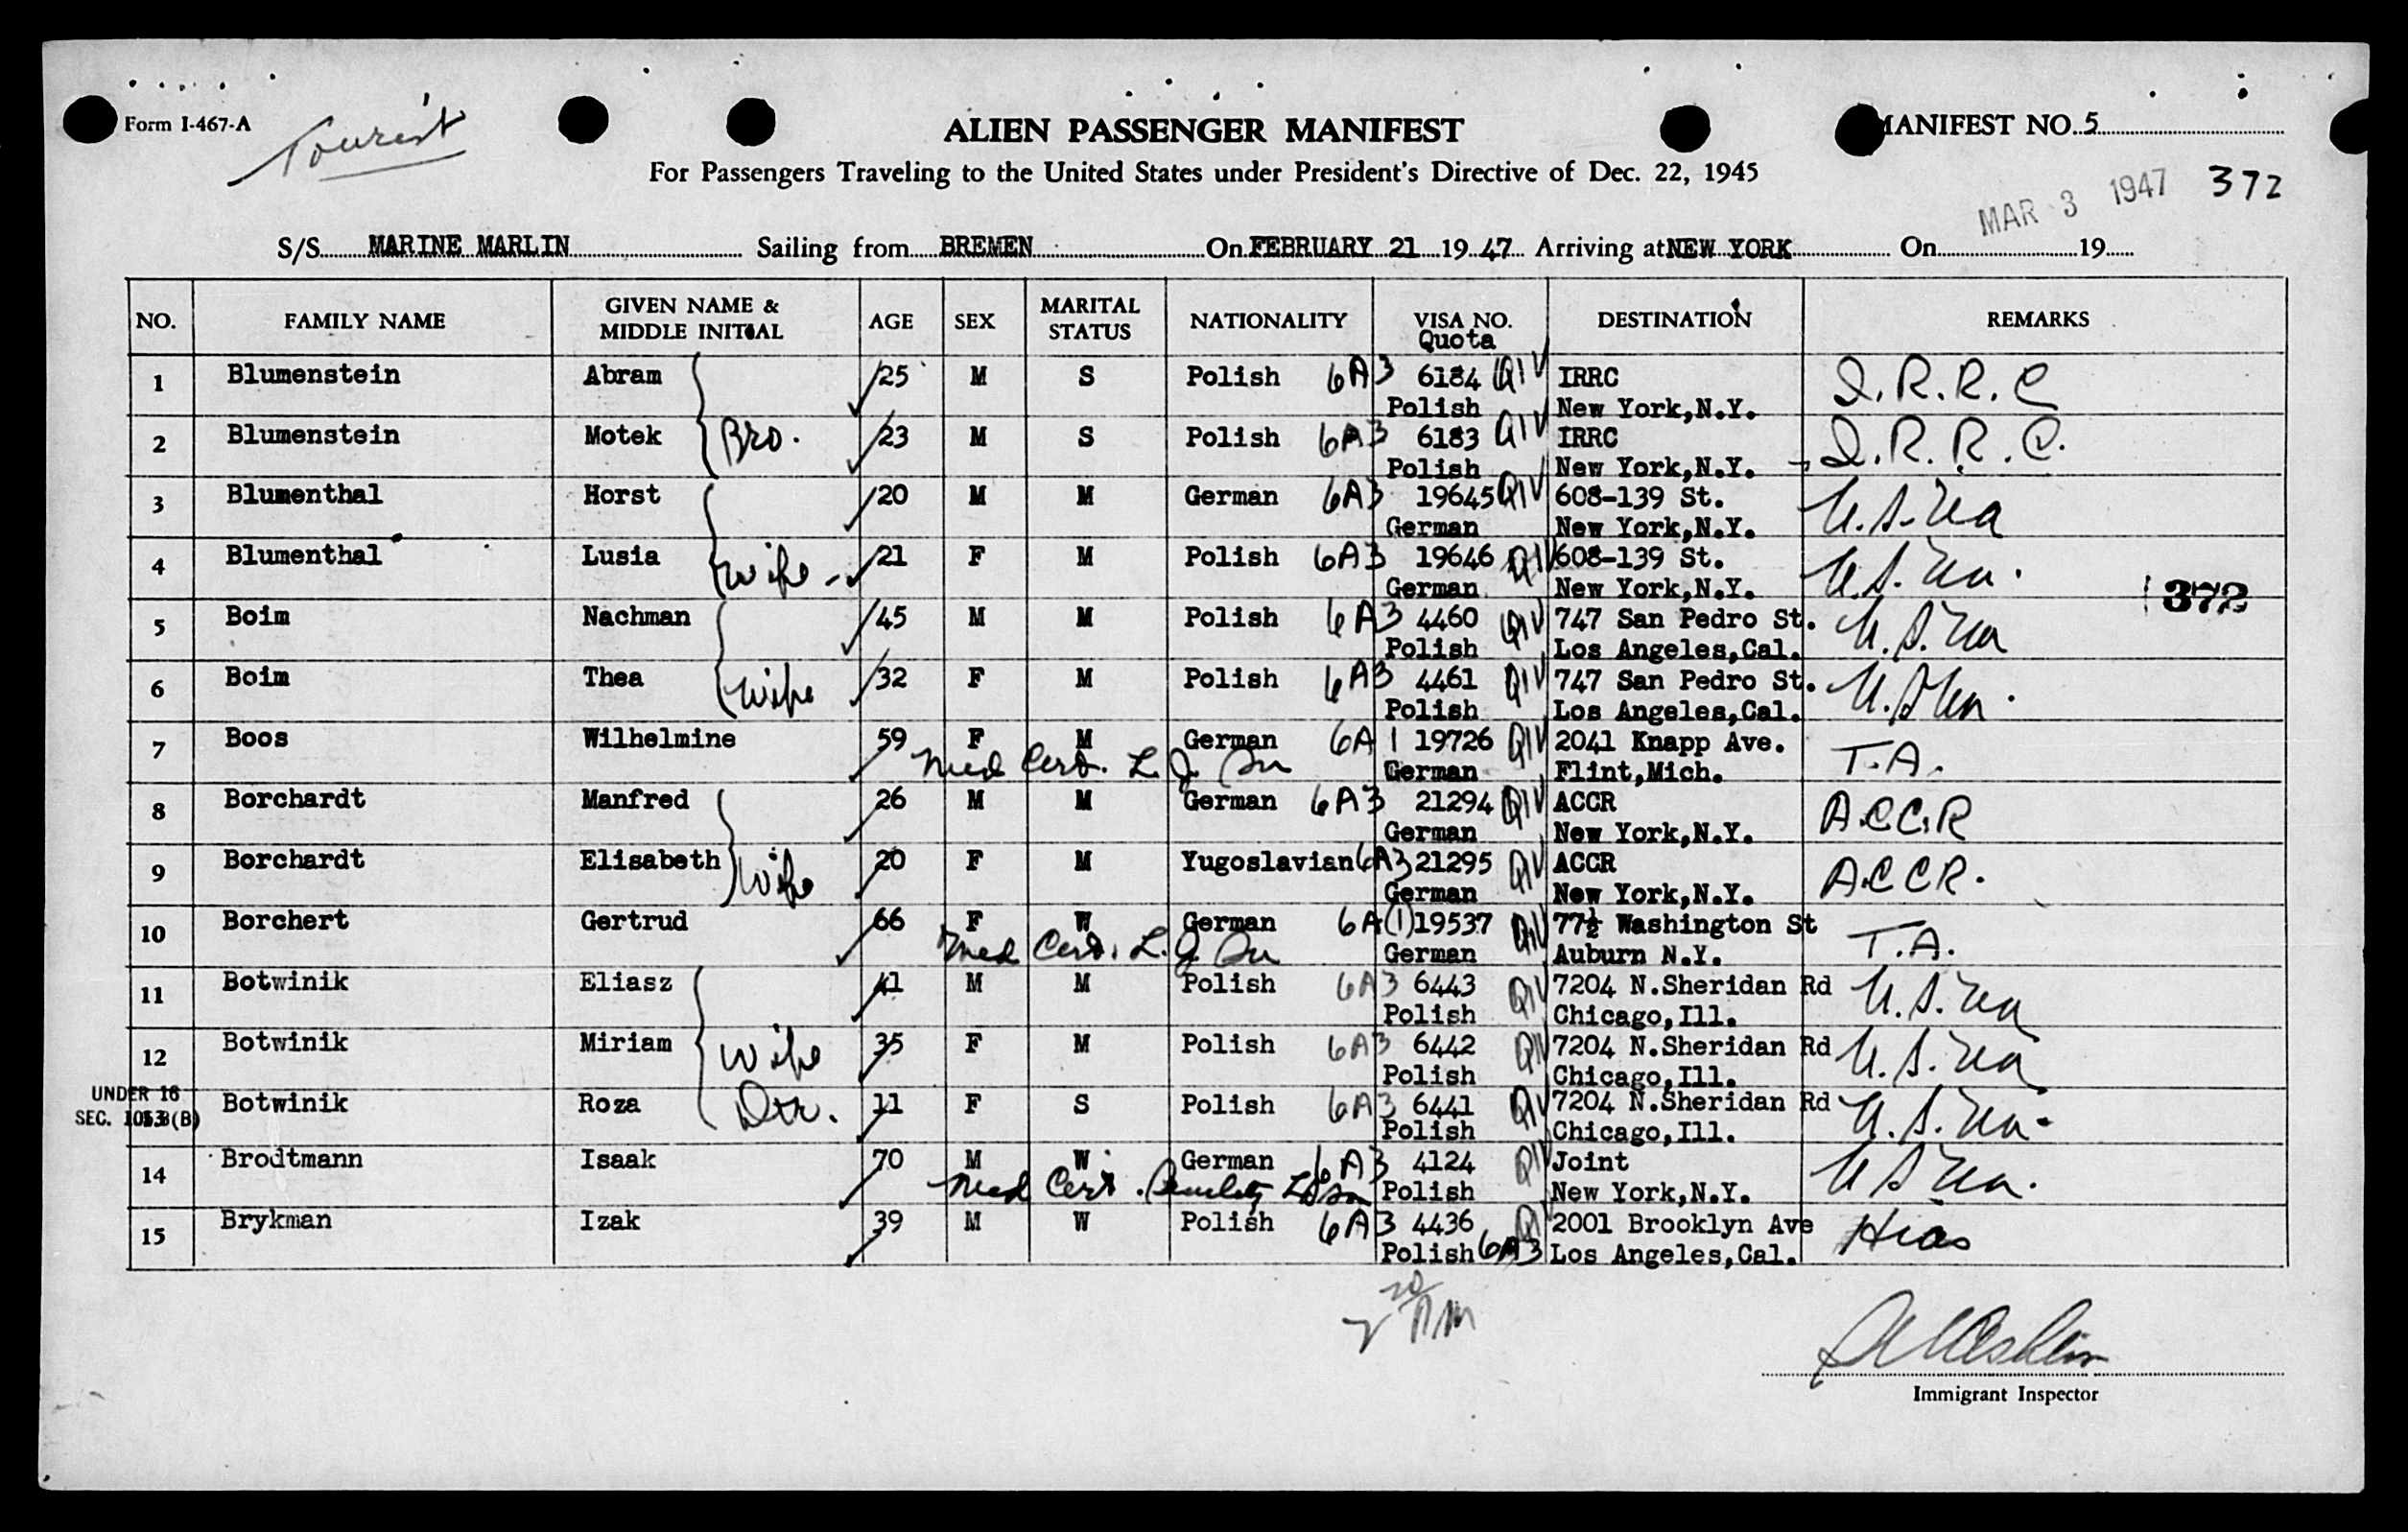 Form I-467-A
Tourist
ALIEN PASSENGER MANIFEST
MANIFEST NO. 5
For Passengers Traveling to the United States under President's Directive of Dec. 22, 1945
MAR 3 1947 372
S/S MARINE MARLIN Sailing from BREMEN On FEBRUARY 21 19 47 Arriving at NEW YORK On 19
NO. FAMILY NAME GIVEN NAME & MIDDLE INITIAL AGE SEX MARITAL STATUS NATIONALITY VISA NO. Quota DESTINATION REMARKS
1 Blumenstein Abram 25 M S Polish 6A3 6184 QIV IRRC I.R.R.C
Polish New York,N.Y.
2 Blumenstein Motek Bro. 23 M S Polish 6A3 6183 QIV IRRC I.R.R.C.
Polish New York,N.Y.
3 Blumenthal Horst 20 M M German 6A3 19645 QIV 608-139 St. U.S.Na
German New York,N.Y.
4 Blumenthal Lusia wife 21 F M Polish 6A3 19646 QIV 608-139 St. U.S.Na.
German New York,N.Y.
372
5 Boim Nachman 45 M M Polish 6A3 4460 QIV 747 San Pedro St. U.S.Na
Polish Los Angeles,Cal.
6 Boim Thea wife 32 F M Polish 6A3 4461 QIV 747 San Pedro St. U.S.Na.
Polish Los Angeles,Cal.
7 Boos Wilhelmine 59 F M German 6A1 19726 QIV 2041 Knapp Ave. T.A.
Med Cert. German Flint,Mich.
8 Borchardt Manfred 26 M M German 6A3 21294 QIV ACCR A.C.C.R
German New York,N.Y.
9 Borchardt Elisabeth wife 20 F M Yugoslavian 6A3 21295 QIV ACCR A.C.C.R.
German New York,N.Y.
10 Borchert Gertrud 66 F W German 6A(1) 19537 QIV 77½ Washington St T.A.
Med Cert. German Auburn N.Y.
11 Botwinik Eliasz 41 M M Polish 6A3 6443 QIV 7204 N.Sheridan Rd U.S.Na
Polish Chicago,Ill.
12 Botwinik Miriam wife 35 F M Polish 6A3 6442 QIV 7204 N.Sheridan Rd U.S.Na
Polish Chicago,Ill.
UNDER 16
SEC. (B) 13 Botwinik Roza Dtr. 11 F S Polish 6A3 6441 QIV 7204 N.Sheridan Rd U.S.Na.
Polish Chicago,Ill.
14 Brodtmann Isaak 70 M W German 6A3 4124 QIV Joint U S Na.
Med Cert. Polish New York,N.Y.
15 Brykman Izak 39 M W Polish 6A3 4436 QIV 2001 Brooklyn Ave Hias
Polish 6A3 Los Angeles,Cal.
Immigrant Inspector